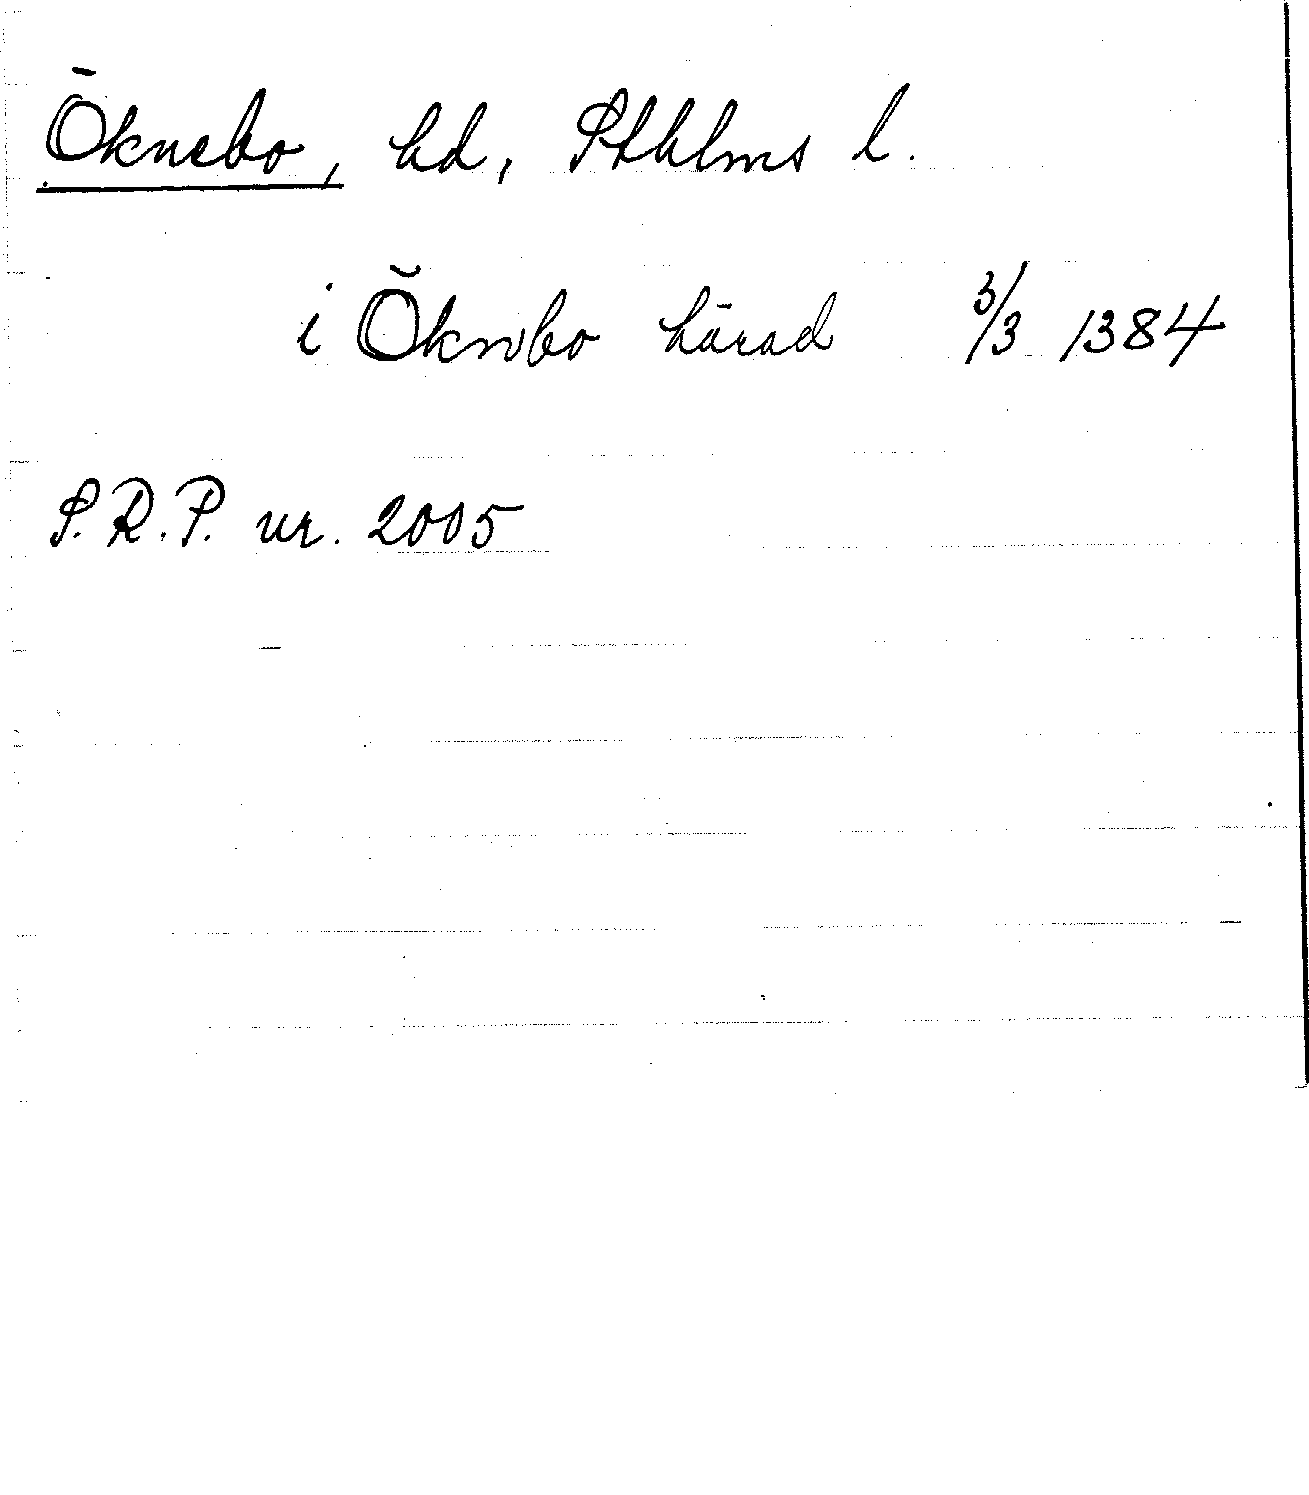 Öknebo, hd, Sthlms l.
i Öknbo härad 3/3 1384
S.R.P. nr. 2005